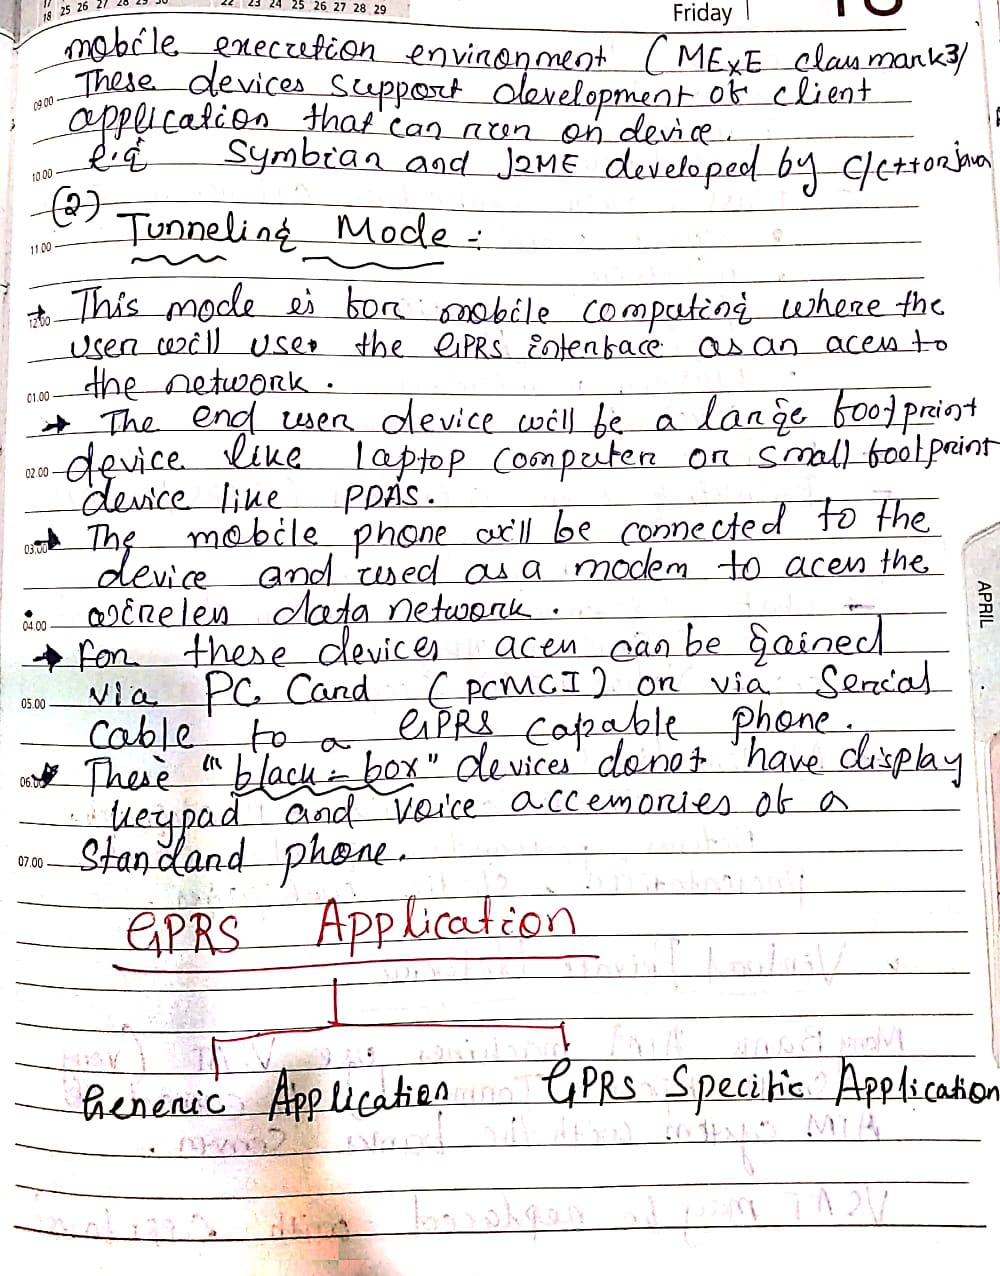 18 25 26 27 28 29 30
22 23 24 25 26 27 28 29
Friday
mobile execution environment (MExE classmark3)
09.00 These devices support development of client
application that can run on device.
10.00 e.g Symbian and J2ME developed by C/C++ or java
(2)
11.00 Tunneling Mode :
12.00 → This mode is for mobile computing where the
user will use the GPRS interface as an acess to
01.00 the network.
→ The end user device will be a large footprint
02.00 device like laptop computer or small footprint
device like PDAS.
03.00 → The mobile phone will be connected to the
device and used as a modem to acess the
04.00 wireless data network.
→ For these devices acess can be gained
05.00 via PC Card (PCMCI) or via Serial
Cable to a GPRS capable phone.
06.00 → These "black-box" devices donot have display
keypad and voice accessories of a
07.00 Standard phone.
APRIL
GPRS Application
Generic Application GPRS Specific Application